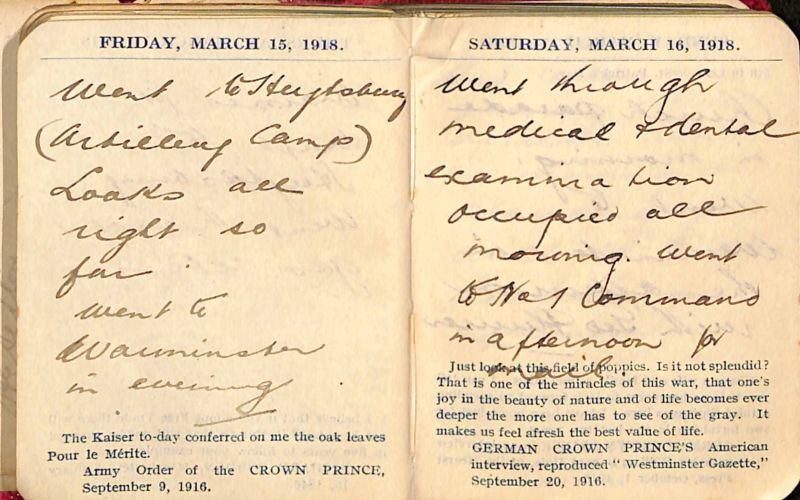 FRIDAY, MARCH 15, 1918.
Went to Heytsbury
(Artillery Camp)
Looks all
right so
far.
Went to
Warminster
in evening.
The Kaiser to-day conferred on me the oak leaves
Pour le Mérite.
Army Order of the CROWN PRINCE,
September 9, 1916.
SATURDAY, MARCH 16, 1918.
Went through
medical & dental
examination
occupied all
morning. Went
to No 1 Command
in afternoon for
mail.
Just look at this field of poppies. Is it not splendid?
That is one of the miracles of this war, that one's
joy in the beauty of nature and of life becomes ever
deeper the more one has to see of the gray. It
makes us feel afresh the best value of life.
GERMAN CROWN PRINCE'S American
interview, reproduced "Westminster Gazette,"
September 20, 1916.